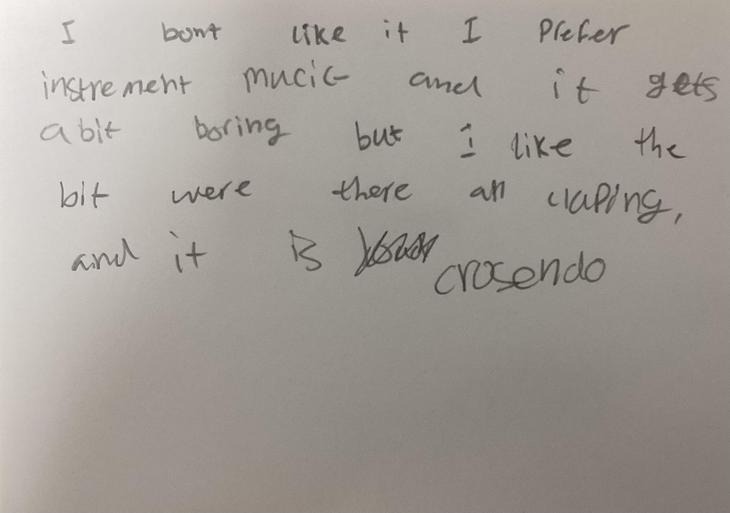 I bont like it I Prefer
instrement mucic and it gets
a bit boring but I like the
bit were there all claping,
and it is crosendo